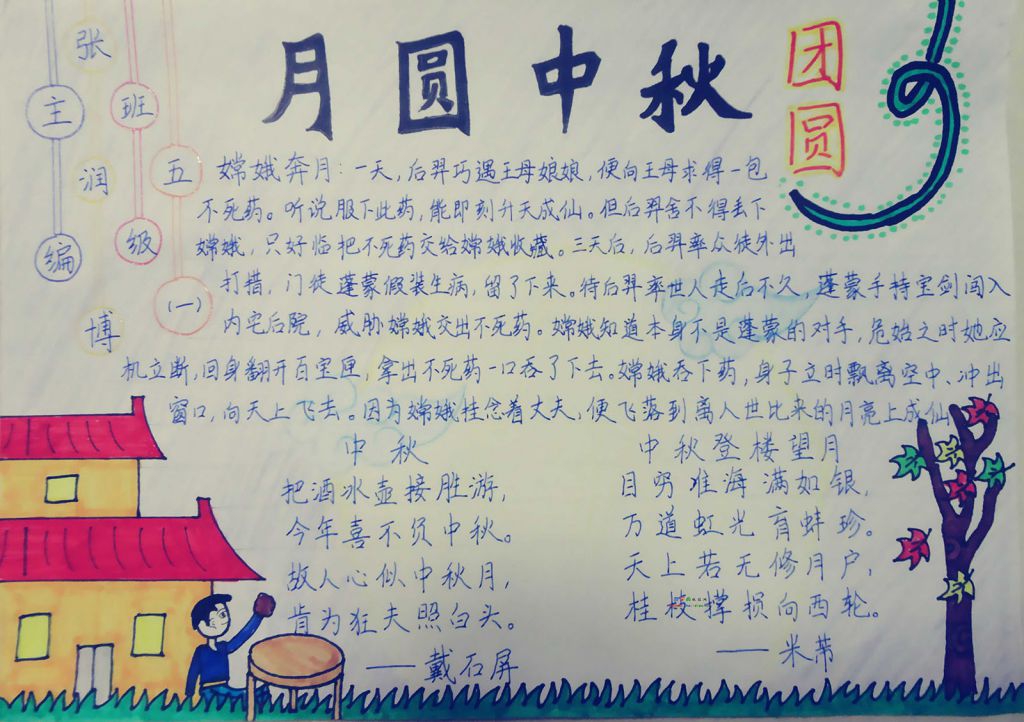 月圆中秋
团圆
张润博
主编
班级
五(一)
嫦娥奔月:一天,后羿巧遇王母娘娘,便向王母求得一包
不死药。听说服下此药,能即刻升天成仙。但后羿舍不得丢下
嫦娥,只好临把不死药交给嫦娥收藏。三天后,后羿率众徒外出
打措,门徒蓬蒙假装生病,留了下来。待后羿率世人走后不久,蓬蒙手持宝剑闯入
内宅后院,威胁嫦娥交出不死药。嫦娥知道本身不是蓬蒙的对手,危始之时她应
机立断,回身翻开百宝匣,拿出不死药一口吞了下去。嫦娥吞下药,身子立时飘离空中、冲出
窗口,向天上飞去。因为嫦娥牲念着丈夫,便飞落到离人世比来的月亮上成仙
中秋
把酒冰壶接胜游,
今年喜不负中秋。
故人心似中秋月,
肯为狂夫照白头。
——戴石屏
中秋登楼望月
目穷淮海满如银,
万道虹光育蚌珍。
天上若无修月户,
桂枝撑损向西轮。
——米芾